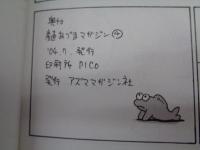 奥付
月刊あづまマガジン④
'04.7. 発行
印刷所 PICO
発行 アズママガジン社